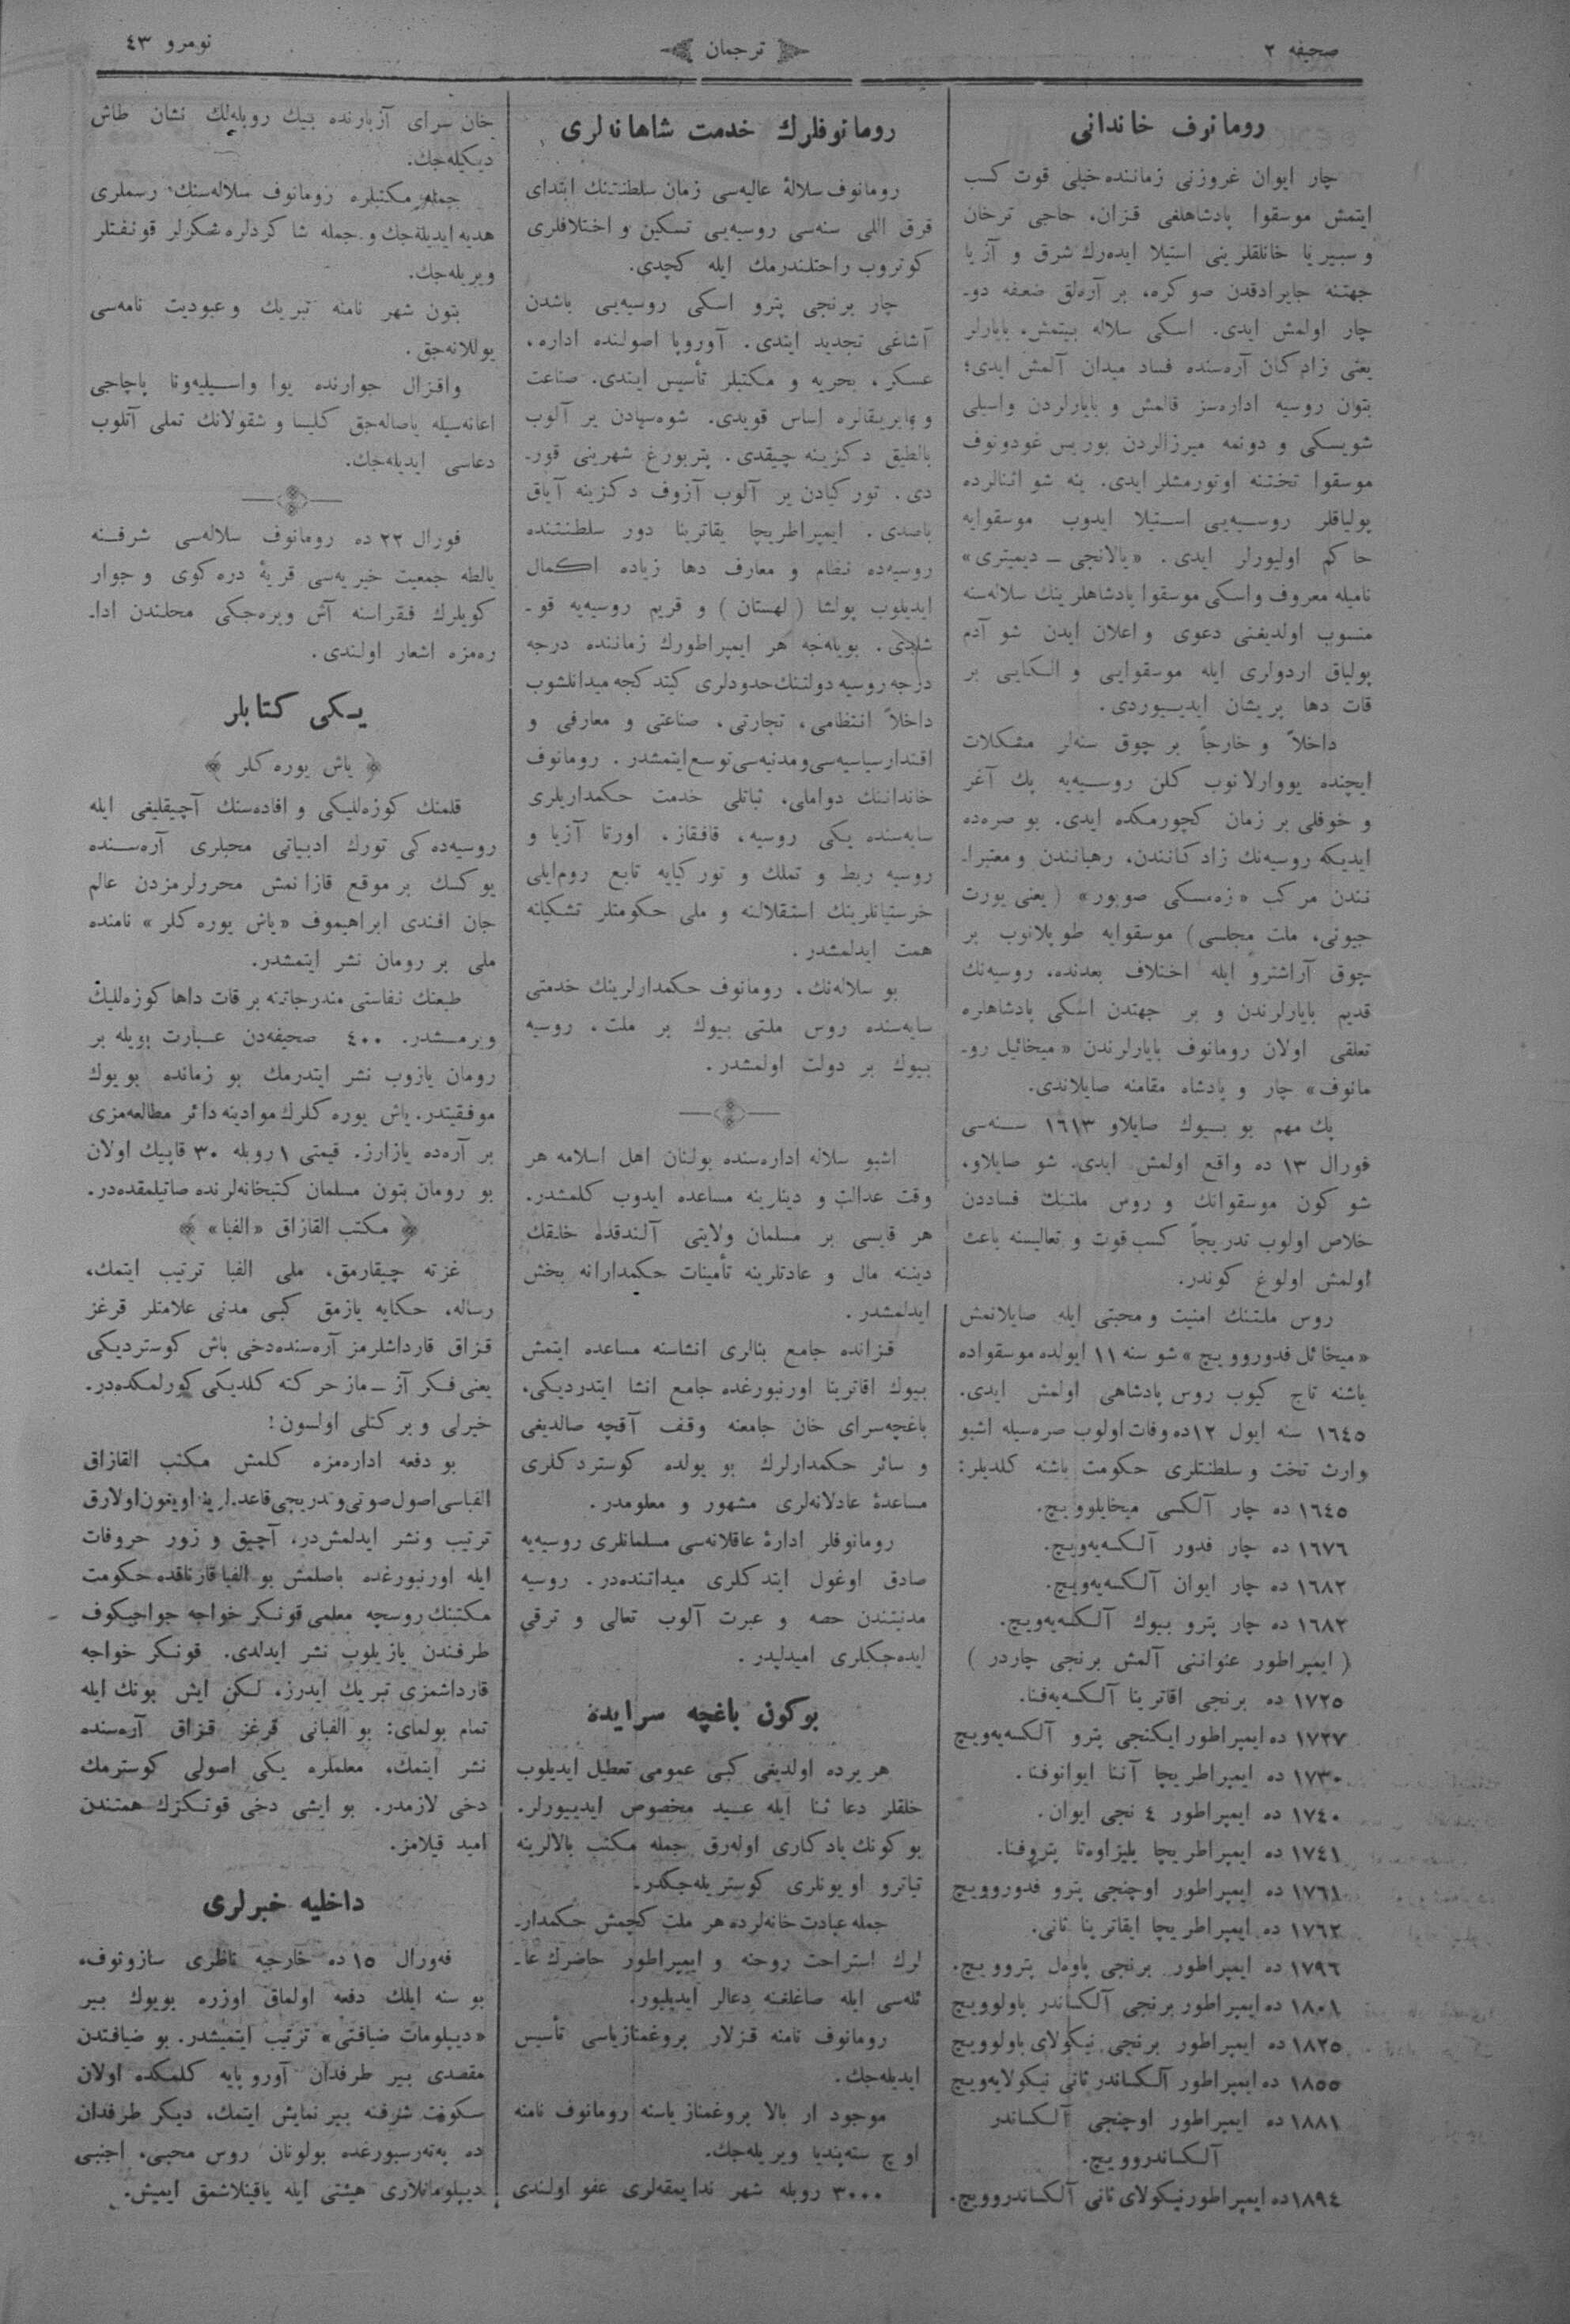 صحيفه ٢
ترجمان
نومرو ٤٣
رومانوف خاندانى
چار ايوان غروزنى زماننده خيلى قوت كسب
ايتمش موسقوا پادشاهلغى قزان، حاجى ترخان
و سيبريا خانلقلرينى استيلا ايده‌رك شرق و آزيا
جهتنه جايرادقدن صوكره، بر آره‌لق ضعفه دو-
چار اولمش ايدى. اسكى سلاله بيتمش، بايارلر
يعنى زادكان آره‌سنده فساد ميدان آلمش ايدى؛
بتوان روسيه اداره‌سز قالمش و بايارلردن واسيلى
شويسكى و دونمه ميرزالردن بوريس غودونوف
موسقوا تختنه اوتورمشلر ايدى. ينه شو اثنالرده
پولياقلر روسيه‌يى استيلا ايدوب موسقوايه
حاكم اوليورلر ايدى. «يالانجى ـ ديميترى»
ناميله معروف و اسكى موسقوا پادشاهلرينك سلاله‌سنه
منسوب اولديغنى دعوى و اعلان ايدن شو آدم
پولياق اردولرى ايله موسقوايى و الكايى بر
قات دها پريشان ايدييوردى.
داخلاً و خارجاً بر چوق سنه‌لر مشكلات
ايچنده يووارلانوب كلن روسيه‌يه پك آغر
و خوفلى بر زمان كچورمكده ايدى. بو صره‌ده
ايديكه روسيه‌نك زادكانندن، رهبانندن و معتبرا-
نندن مركب «زه‌مسكى صوبور» (يعنى يورت
جيونى، ملت مجلسى) موسقوايه طوپلانوب بر
چوق آراشترو ايله اختلاف بعدنده، روسيه‌نك
قديم بايارلرندن و بر جهتدن اسكى پادشاهلره
تعلقى اولان رومانوف بايارلرندن «ميخائيل رو-
مانوف» چار و پادشاه مقامنه صايلاندى.
پك مهم بو بيوك صايلاو ١٦١٣ سنه‌سى
فورال ١٣ ده واقع اولمش ايدى. شو صايلاو،
شو كون موسقوانك و روس ملتنك فساددن
خلاص اولوب تدريجاً كسب قوت و تعاليسنه باعث
اولمش اولوغ كوندر.
روس ملتنك امنيت و محبتى ايله صايلانمش
«ميخائل فدوروويچ» شو سنه ١١ ايولده موسقواده
باشنه تاج كيوب روس پادشاهى اولمش ايدى.
١٦٤٥ سنه ايول ١٢ ده وفات اولوب صره‌سيله اشبو
وارث تخت و سلطنتلرى حكومت باشنه كلديلر:
١٦٤٥ ده چار آلكسى ميخايلوويچ.
١٦٧٦ ده چار فدور آلكسه‌يه‌ويچ.
١٦٨٢ ده چار ايوان آلكسه‌يه‌ويچ.
١٦٨٢ ده چار پترو بيوك آلكسه‌يه‌ويچ.
( ايمپراطور عنواننى آلمش برنجى چاردر )
١٧٢٥ ده برنجى اقاترينا آلكسه‌يه‌فنا.
١٧٢٧ ده ايمپراطور ايكنجى پترو آلكسه‌يه‌ويچ
١٧٣٠ ده ايمپراطريچا آننا ايوانوفنا.
١٧٤٠ ده ايمپراطور ٤ نجى ايوان.
١٧٤١ ده ايمپراطريچا يليزاوه‌تا پتروفنا.
١٧٦١ ده ايمپراطور اوچنجى پترو فدوروويچ
١٧٦٢ ده ايمپراطريچا ايقاترينا ثانى.
١٧٩٦ ده ايمپراطور برنجى پاوه‌ل پتروويچ.
١٨٠١ ده ايمپراطور برنجى آلكساندر پاولوويچ
١٨٢٥ ده ايمپراطور برنجى نيكولاى پاولوويچ
١٨٥٥ ده ايمپراطور آلكساندر ثانى نيكولايه‌ويچ
١٨٨١ ده ايمپراطور اوچنجى آلكساندر
آلكساندروويچ.
١٨٩٤ ده ايمپراطور نيكولاى ثانى آلكساندروويچ.
رومانوفلرك خدمت شاهانه‌لرى
رومانوف سلالهٔ عاليه‌سى زمان سلطنتنك ابتداى
قرق اللى سنه‌سى روسيه‌يى تسكين و اختلافلرى
كوتروب راحتلندرمك ايله كچدى.
چار برنجى پترو اسكى روسيه‌يى باشدن
آشاغى تجديد ايتدى. آوروپا اصولنده اداره،
عسكر، بحريه و مكتبلر تأسيس ايتدى. صناعت
و فابريقالره اساس قويدى. شوه‌سيادن ير آلوب
بالطيق دكزينه چيقدى. پتربورغ شهرينى قور-
دى. توركيادن ير آلوب آزوف دكزينه آياق
باصدى. ايمپراطريچا يقاترينا دور سلطنتنده
روسيه‌ده نظام و معارف دها زياده اكمال
ايديلوب پولشا (لهستان) و قريم روسيه‌يه قو-
شلدى. بويله‌جه هر ايمپراطورك زماننده درجه
درجه روسيه دولتنك حدودلرى كيتدكجه ميدانلشوب
داخلاً انتظامى، تجارتى، صناعتى و معارفى و
اقتدار سياسيه‌سى و مدنيه‌سى توسع ايتمشدر. رومانوف
خانداننك دواملى، ثباتلى خدمت حكمداريلرى
سايه‌سنده يكى روسيه، قافقاز، اورتا آزيا و
روسيه ربط و تملك و توركيايه تابع روم‌ايلى
خرستيانلرينك استقلالنه و ملى حكومتلر تشكيلنه
همت ايدلمشدر.
بو سلاله‌نك، رومانوف حكمدارلرينك خدمتى
سايه‌سنده روس ملتى بيوك بر ملت، روسيه
بيوك بر دولت اولمشدر.
اشبو سلاله اداره‌سنده بولنان اهل اسلامه هر
وقت عدالت و دينلرينه مساعده ايدوب كلمشدر.
هر قايسى بر مسلمان ولايتى آلندقده خلقك
ديننه مال و عادتلرينه تأمينات حكمدارانه بخش
ايدلمشدر.
قزانده جامع بنالرى انشاسنه مساعده ايتمش
بيوك اقاترينا اورنبورغده جامع انشا ايتدرديكى،
باغچه‌سراى خان جامعنه وقف آقچه صالديغى
و سائر حكمدارلرك بو يولده كوستردكلرى
مساعدهٔ عادلانه‌لرى مشهور و معلومدر.
رومانوفلر ادارهٔ عاقلانه‌سى مسلمانلرى روسيه‌يه
صادق اوغول ايتدكلرى ميداننده‌در. روسيه
مدنيتندن حصه و عبرت آلوب تعالى و ترقى
ايده‌جكلرى اميدليدر.
بوكون باغچه سرايده
هر يرده اولديغى كبى عمومى تعطيل ايديلوب
خلقلر دعا ثنا ايله عيد مخصوص ايدييورلر.
بو كونك يادكارى اوله‌رق جمله مكتب بالالرينه
تياترو اويونلرى كوستريله‌جكدر.
جمله عبادت خانه‌لرده هر ملت كچمش حكمدار-
لرك استراحت روحنه و ايمپراطور حاضرك عا-
ئله‌سى ايله صاغلغنه دعالر ايديليور.
رومانوف نامنه قزلار پروغمنازياسى تأسيس
ايديله‌جك.
موجود ار بالا پروغمنازياسنه رومانوف نامنه
اوچ سته‌پنديا ويريله‌جك.
٣٠٠٠ روبله شهر ندايمقه‌لرى عفو اولندى
خان سراى آزبارنده بيك روبله‌لك نشان طاش
ديكيله‌جك.
جمله مكتبلره رومانوف سلاله‌سنك رسملرى
هديه ايديله‌جك و جمله شاكردلره شكرلر قونفتلر
ويريله‌جك.
بتون شهر نامنه تبريك و عبوديت نامه‌سى
يوللانه‌جق.
واقزال جوارنده يوا واسيليه‌ونا پاچاجى
اعانه‌سيله ياصاله‌جق كليسا و شقولانك تملى آتلوب
دعاسى ايديله‌جك.
فورال ٢٢ ده رومانوف سلاله‌سى شرفنه
يالطه جمعيت خيريه‌سى قريهٔ دره‌كوى و جوار
كويلرك فقراسنه آش ويره‌جكى محلندن ادا-
ره‌مزه اشعار اولندى.
يكى كتابلر
﴿ ياش يوره‌كلر ﴾
قلمنك كوزه‌لليكى و افاده‌سنك آچيقليغى ايله
روسيه‌ده‌كى تورك ادبياتى محبلرى آره‌سنده
يوكسك بر موقع قازانمش محررلرمزدن عالم
جان افندى ابراهيموف «ياش يوره‌كلر» نامنده
ملى بر رومان نشر ايتمشدر.
طبعنك نفاستى مندرجاتنه بر قات داها كوزه‌لليك
ويرمشدر. ٤٠٠ صحيفه‌دن عبارت بويله بر
رومان يازوب نشر ايتدرمك بو زمانده بويوك
موفقيتدر. ياش يوره‌كلرك موادينه دائر مطالعه‌مزى
بر آره‌ده يازارز. قيمتى ١ روبله ٣٠ قاپيك اولان
بو رومان بتون مسلمان كتبخانه‌لرنده صاتيلمقده‌در.
﴿ مكتب القازاق «الفبا» ﴾
غزته چيقارمق، ملى الفبا ترتيب ايتمك،
رساله، حكايه يازمق كبى مدنى علامتلر قرغز
قزاق قارداشلرمز آره‌سنده‌دخى باش كوسترديكى
يعنى فكر آز ـ ماز حركته كلديكى كورلمكده‌در.
خيرلى و بركتلى اولسون!
بو دفعه اداره‌مزه كلمش مكتب القازاق
الفباسى اصول صوتى و تدريجى قاعده‌لرينه اويغون اولارق
ترتيب و نشر ايدلمش‌در، آچيق و زور حروفات
ايله اورنبورغده باصلمش بو الفبا قازناقده حكومت
مكتبنك روسچه معلمى قونكر خواجه جواجيكوف
طرفندن يازيلوب نشر ايدلدى. قونكر خواجه
قارداشمزى تبريك ايدرز، لكن ايش بونك ايله
تمام بولماى: بو الفبانى قرغز قزاق آره‌سنده
نشر ايتمك، معلملره يكى اصولى كوسترمك
دخى لازمدر. بو ايشى دخى قونكزك همتندن
اميد قيلامز.
داخليه خبرلرى
فه‌ورال ١٥ ده خارجيه ناظرى سازونوف،
بو سنه ايلك دفعه اولماق اوزره بويوك بير
«ديپلومات ضيافتى» ترتيب ايتميشدر. بو ضيافتدن
مقصدى بير طرفدان آوروپايه كلمكده اولان
سكونت شرفنه بير نمايش ايتمك، ديكر طرفدان
ده په‌ته‌رسبورغده بولونان روس محبى، اجنبى
ديپلوماتلارى هيئتى ايله ياقينلاشمق ايميش.